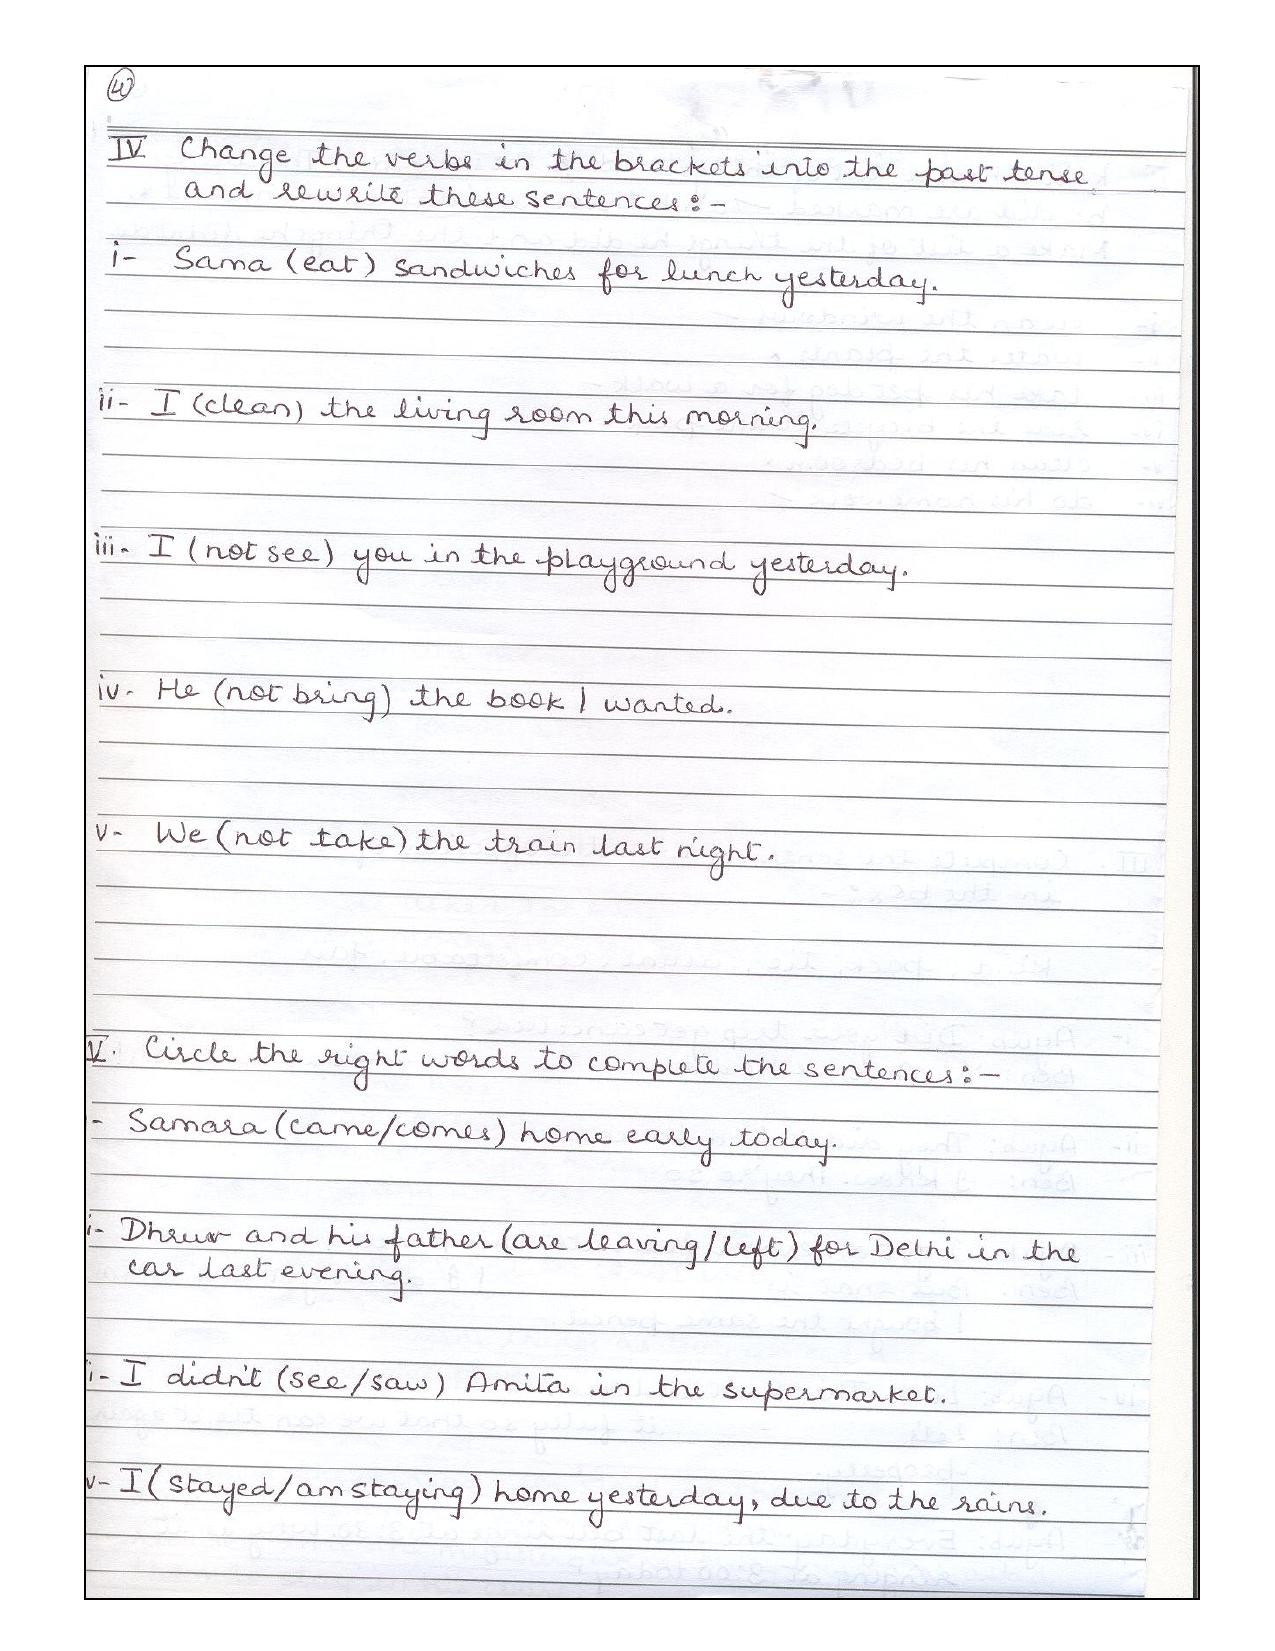 4
IV Change the verbs in the brackets into the past tense
and rewrite these sentences:-
i- Sama (eat) sandwiches for lunch yesterday.
ii- I (clean) the living room this morning.
iii- I (not see) you in the playground yesterday.
iv- He (not bring) the book I wanted.
v- We (not take) the train last night.
V. Circle the right words to complete the sentences:-
- Samara (came/comes) home early today.
i- Dhruv and his father (are leaving/left) for Delhi in the
car last evening.
i- I didn't (see/saw) Amita in the supermarket.
v- I (stayed/am staying) home yesterday, due to the rains.